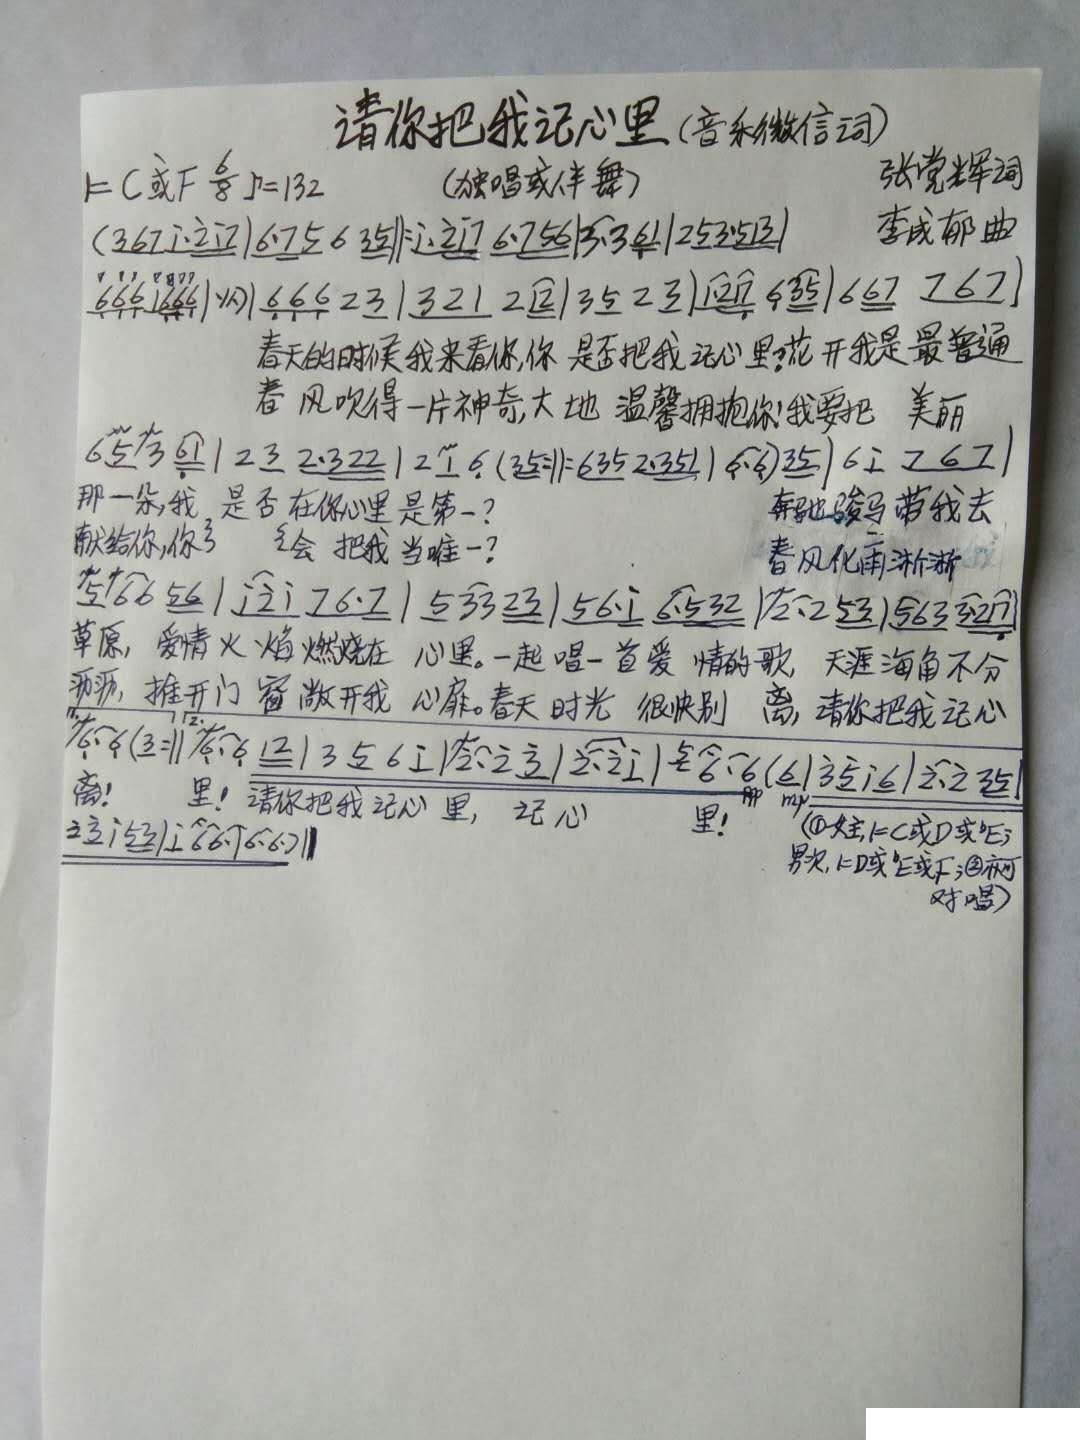 请你把我记心里(音乐微信词)
1=C或F 6/8 ♪=132 (独唱或伴舞) 张党辉词
(367 i·2i7|6·75 6 35||:i·2i7 6·756|3·361|253·513| 李成郁曲
666 1666| 666 23|321 212|35 23|1217 635|667 767|
春天的时候我来看你,你 是否把我记心里?花开我是最普通
春风吹得一片神奇,大地 温馨拥抱你!我要把 美丽
653 61|23 2·322|2 1 6 (35:||:635 2·351|6·6)35|6i 767|
那一朵,我 是否在你心里是第一? 奔驰骏马带我去
献给你,你 会把我当唯一? 春风化雨淅淅
566 56|i2i 76·7|533 23|56·i 6·532|2·2 53|563 3·217|
草原, 爱情火焰燃烧在 心里。一起唱一首爱 情的歌, 天涯海角不分
沥沥, 推开门窗敞开我 心扉。春天时光 很快别 离, 请你把我记心
6·6(3:|| 6·6 12|35 6i|2·2 3|2·2i|6·6(6|35i6|2·2 35|
离! 里! 请你把我记心里, 记心 里! (①女主,1=C或D或bE;
23i53|i66·|6·6·)|| 男次,1=D或bE或F;②亦可
对唱)